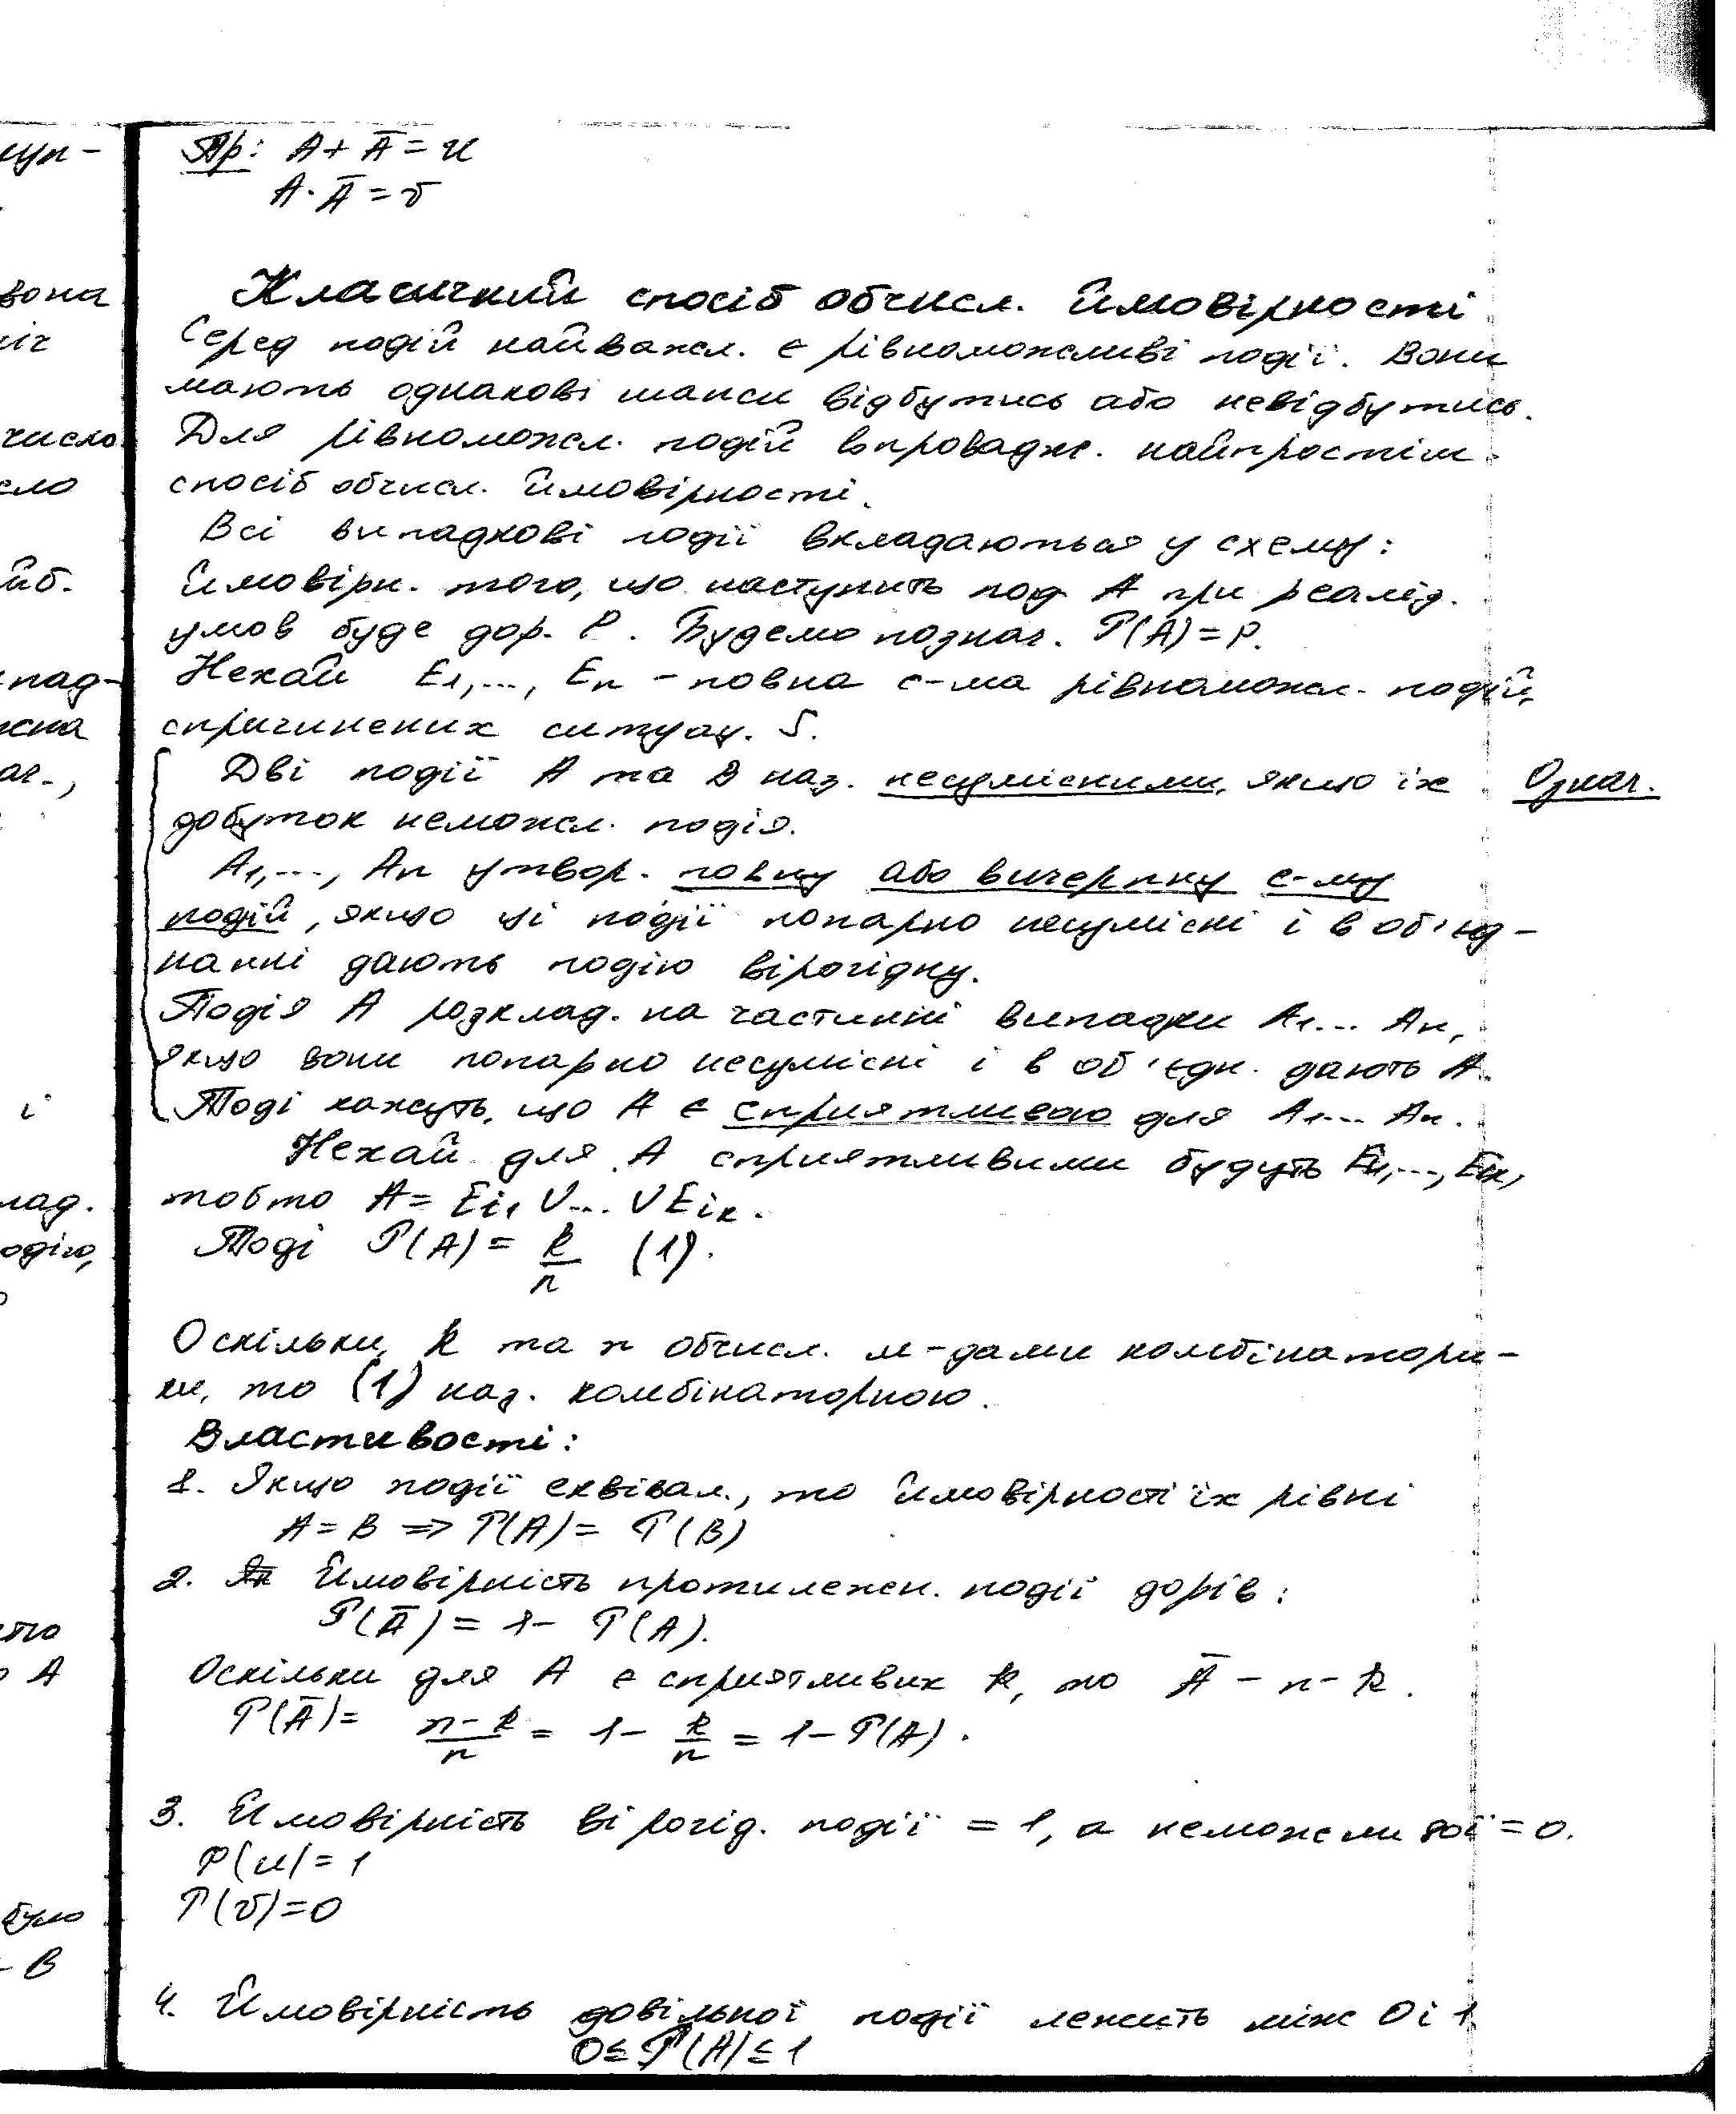 Пр: A + Ā = u
A · Ā = v
Класичний спосіб обчисл. ймовірності
Серед подій найважл. є рівноможливі події. Вони
мають однакові шанси відбутись або невідбутись.
Для рівноможл. подій впровадж. найпростіш.
спосіб обчисл. ймовірності.
Всі випадкові події вкладаються у схему:
Ймовірн. того, що наступить под A при реаліз.
умов буде дор. P. Будемо познач. P(A) = P.
Нехай E₁,..., Eₙ – повна с-ма рівноможл. подій,
спричинених ситуац. S.
Дві події A та B наз. несумісними, якщо їх
Означ.
добуток неможл. подія.
A₁,..., Aₙ утвор. повну або вичерпну с-му
подій, якщо ці події попарно несумісні і в об'єд-
нанні дають подію вірогідну.
Подія A розклад. на частинні випадки A₁... Aₙ,
якщо вони попарно несумісні і в об'єдн. дають A.
Тоді кажуть, що A є сприятливою для A₁... Aₙ.
Нехай для A сприятливими будуть Eᵢ₁,..., Eᵢₖ,
тобто A = Eᵢ₁ V... V Eᵢₖ.
Тоді P(A) = k/n (1).
Оскільки k та n обчисл. м-дами комбінатори-
ки, то (1) наз. комбінаторною.
Властивості:
1. Якщо події еквівал., то ймовірності їх рівні
A = B => P(A) = P(B)
2. Ймовірність протилежн. події дорів:
P(Ā) = 1 – P(A).
Оскільки для A є сприятливих k, то Ā – n – k.
P(Ā) = (n – k)/n = 1 – k/n = 1 – P(A).
3. Ймовірність вірогід. події = 1, а неможливої = 0.
P(u) = 1
P(v) = 0
4. Ймовірність довільної події лежить між 0 і 1
0 ≤ P(A) ≤ 1